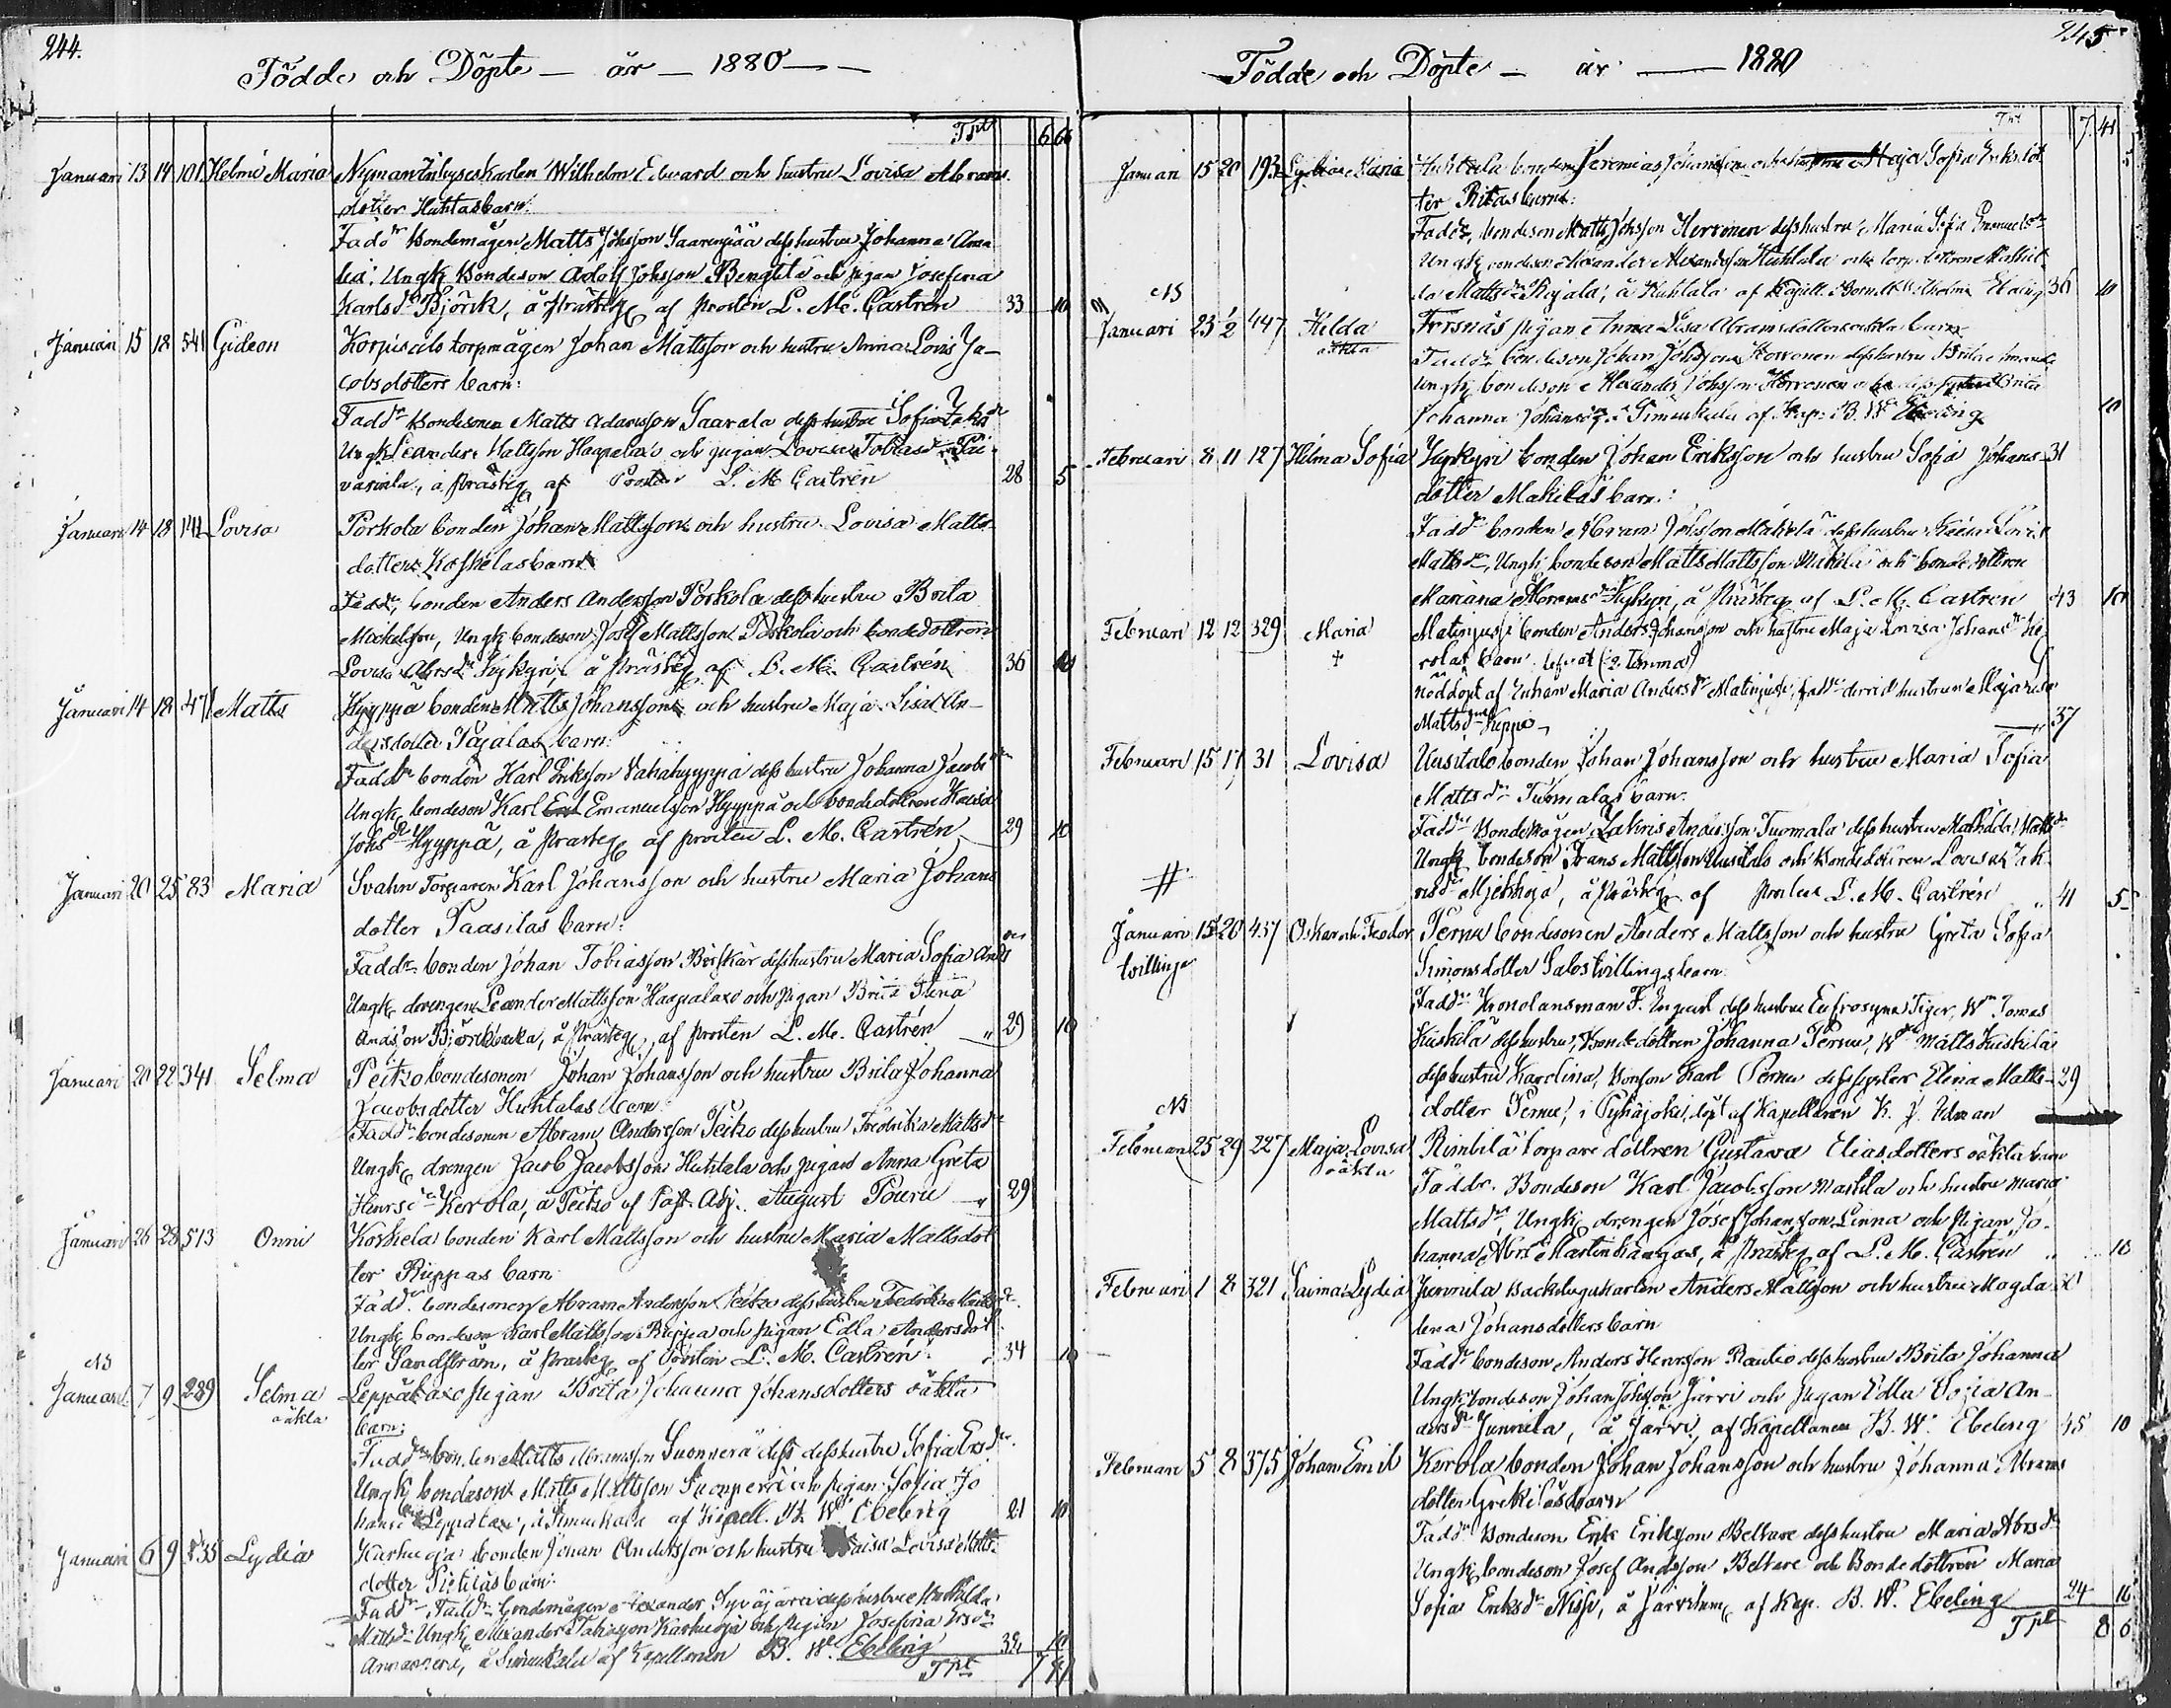 244.
Födde och Döpte — år — 1880 — —
Tpt 6 66
Januari 13 14 101 Helmi Maria Nyman Inhyseskarlen Wilhelm Edward och hustru Lovisa Abrams
dotter Huhtas barn:
Faddr Bondemågen Matts Johsson Saarenpää dess hustru Johanna Ama
lia: Ungk Bondeson Adolf Johsson Bengtilä och pigan Josefina
Karlsdr Björik, å Prästeg af Prosten L. M. Castrén 33 10
Januari 15 18 541 Gideon Korpisalo torpmågen Johan Mattsson och hustru Anna Lovis Ja-
cobsdotters barn:
Faddr Bondesonen Matts Adamsson Saarela dess hustru Sofia Jakdr
Ungk Leander Mattsson Haapalaxo och pigan Lovisa Tobiasdr
å Prästeg af Prosten L. M. Castrén 28 5
Januari 14 18 141 Lovisa Porkola bonden Johan Mattsson och hustru Lovisa Matts
dotters Koskelas barn
Faddr, bonden Anders Andersson Porkola dess hustru Brita
Ungk bondeson Josef Mattsson Porkola och bondedottren
Lovisa Abrsdr Kykyri å Prästeg af L. M. Castrén 36 10
Januari 14 18 471 Matts Hyyppä bonden Matts Johansson och hustru Maja Lisa An-
dersdotter Pajalas barn:
Faddr bonden Karl Eriksson Vähähyyppä dess hustru Johanna Jacobsdr
Ungk bondeson Karl Emanuelsson Hyyppä och bondedottren Kaisa
Johsdr Hyyppä, å Prästeg af prosten L. M. Castrén 29 10
Januari 20 25 83 Maria Svahn Torparen Karl Johansson och hustru Maria Johans
dotter Paasilas barn:
Faddr bonden Johan Tobiasson Björkär dess hustru Maria Sofia Andsdr
Ungk drengen Leander Mattsson Haapalaxo och Pigan Brita Elena
Björkbacka, å Prästeg af Prosten L. M. Castrén " 29 10
Januari 20 22 341 Selma Peitzo bondesonen Johan Johansson och hustru Brita Johanna
Jacobsdotter Huhtalas barn
Faddr bondesonen Abram Andersson Peitzo dess hustru Fredrika Mattsdr
Ungk drengen Jacob Jacobsson Huhtala och pigan Anna Greta
Henrsdr Kerola, å Peitzo af Past. Adj. August Pouru " 29
Januari 26 28 513 Onni Koskela bonden Karl Mattsson och hustru Maria Mattsdot
ter Ruppas barn
Faddr bondesonen Abram Andersson Peitzo dess hustru Fredrika Mattsdr
Ungk bondeson Karl Mattsson Ruppa och pigan Edla Andersdot
ter Sandström, å Prästeg af Prosten L. M. Castrén " 34 10
NB
Januari 7 9 289 Selma Leppälaxo pigan Brita Johanna Johansdotters oäkta
oäkta barn:
Faddr bonden Matts Abramsson Suonperä dess hustru Sofia Ersdr
Ungk bondeson Matts Mattsson Suonperä och pigan Sofia Jo
hansdr Leppälaxo, å Simuckala af Kapell. B. W. Ebeling 21 10
Januari 6 9 Lydia Karhuoja bonden Johan Andersson och hustru Kaisa Lovisa Matts
dotter Pietiläs barn:
Faddr bondemågen Alexander Syväjärvi dess hustru Mathilda
Mattsdr Ungk Alexander Karhuoja och pigan Josefina Ersdr
Annanperä, å Simuckala af Kapellanen B. W. Ebeling 10
Tpt 7 41
245.
Födde och Döpte — år — 1880
Tpt 7. 41
Januari 15 20 193 Lydia Maria Huhtala bonden Jeremias Johansson och hustru Maja Sofia Eriksdot 5
ter Ritas barn:
Faddr, bondeson Matts Johsson Herronen dess hustru Maria Sofia Emanuelsdr
Ungk bondeson Alexander Alexandersson Huhtala och torp. dottren Mathil
da Mattsdr Rajala, å Huhtala af Kapell. Ebeling 36 10
NB
Januari 23 1/2 447 Hilda Forsnäs pigan Anna Lisa Abramsdotters oäkta barn
oäkta Faddr bondeson Johan Johsson Korronen dess hustru Brita
Ungk bondeson Alexander Johsson Herronen och dess syster Brita
Johanna Johansdr, å Simuckala af Kap. B. W. Ebeling 10
Februari 8 11 127 Hilma Sofia Kykyri bonden Johan Eriksson och hustru Sofia Johans- 31
dotter Mäkiläs barn:
Faddr bonden Abram Johsson Mäkelä dess hustru Kaisa Lovis
Mattsdr, Ungk bondeson Matts Mattsson Mäkilä och bondedottren
Mariana Abramsdr Kykyri, å Prästeg af L. M. Castren 43 10
Februari 12 12 329 Maria Matinjussi bonden Anders Johansson och hustru Maja Lovisa Johansdr Ke
† rolas barn
nöddöpt af Enkan Maria Andersdr Matinjussi, Faddr hustrun Maja Lisa
Mattsdr Ruppa — " 37
Februari 15 17 31 Lovisa Uusitalo bonden Johan Johansson och hustru Maria Sofia
Mattsdr Tuomalas barn.
Faddr Bondemågen Zakris Andersson Tuomala dess hustru Mathilda Mattsdr
Ungk bondeson Frans Mattsson Uusitalo och bondedottren Lovisa Zak
risdr Mjetshoja, å Prästeg af Prosten L. M. Castrén " 41 5
#
Januari 15 20 457 Oskar och Feodor Pernu bondesonen Anders Mattsson och hustru Greta Sofia
tvillingar Simonsdotter Salos tvillingsbarn
Faddr Kronolänsman F. Ingvert dess hustru Eufrosyna Tiger, Wm Tomas
Kiiskilä dess hustru, Bondedottren Johanna Pernu, Wm Matts Kiiskilä
dess hustru Karolina, Bonson Karl Pernu dess syster Elina Matts- 29
dotter Pernu, i Pyhäjoki, döpt af Kapellanen K. J. Idman
NB
Februari 25 29 227 Maja Lovisa Rimbilä torpare dottren Gustava Eliasdotters oäkta barn
oäkta Faddr. Bondeson Karl Jacobsson Mattila och hustru Maria
Mattsdr, Ungk drengen Josef Johansson Linna och pigan Jo-
hanna Abrsdr Martinkangas, å Prästeg af L. M. Castrén " 10
Februari 1 8 321 Saima Lydia Junnila Backstugukarlen Anders Mattsson och hustru Magda
lena Johansdotters barn
Faddr bondeson Anders Henrsson Rautio dess hustru Brita Johanna
Ungk bondeson Johan Johsson Järvi och pigan Edla Sofia An-
dersdr Junnila, å Järvi, af Kapellanen B. W. Ebeling 45 10
Februari 5 8 375 Johan Emil Kerola bonden Johan Johansson och hustru Johanna Abrams
dotter Grekiläs barn
Faddr Bondeson Erik Eriksson Beltare dess hustru Maria Abrsdr
Ungk bondeson Josef Andsson Beltare och Bondedottren Maria
Sofia Eriksdr Niss, å Järvikum af Kap. B. W. Ebeling 24 16
Tpt 8 6